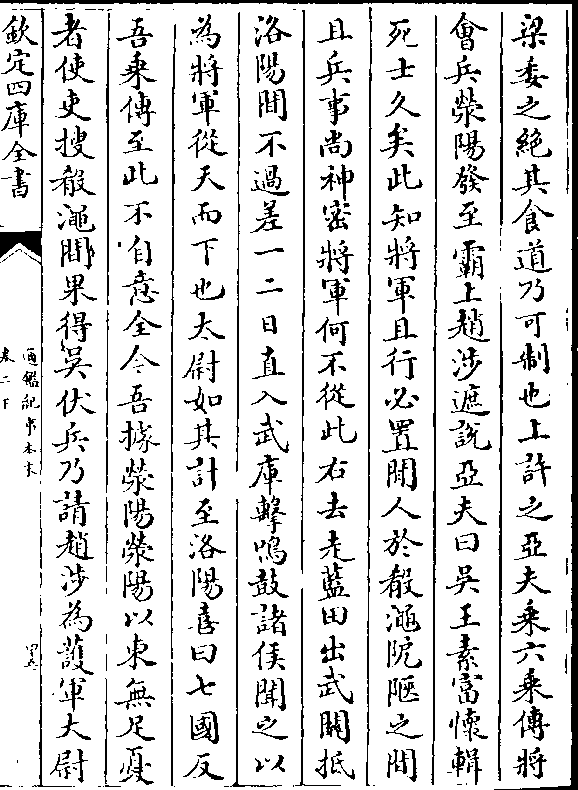 梁委之絶其食道乃可制也上許之亞夫乘六乘傳將
會兵滎陽發至霸上趙涉遮說亞夫曰吳王素富懷輯
死士久矣此知將軍且行必置間人於殽澠阨陿之間
且兵事尚神密將軍何不從此右去走藍田出武關抵
洛陽間不過差一二日直入武庫擊鳴鼓諸侯聞之以
為將軍從天而下也太尉如其計至洛陽喜曰七國反
吾乗傳至此不自意全今吾據滎陽滎陽以東無足憂
者使吏搜殽澠間果得吳伏兵乃請趙涉為護軍大尉
欽定四庫全書
通鑑紀事本末
卷二下